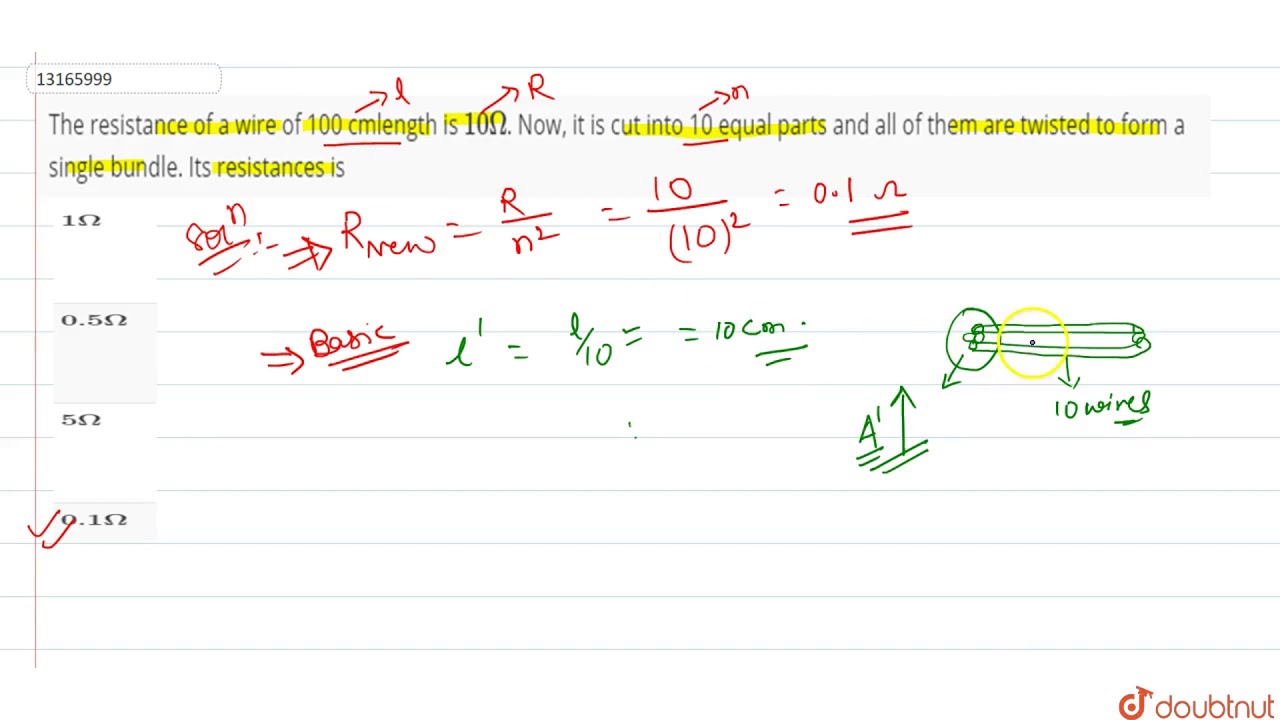 13165999
→ l
→ R
→ n
The resistance of a wire of 100 cmlength is 10Ω. Now, it is cut into 10 equal parts and all of them are twisted to form a
single bundle. Its resistances is
1Ω
Solⁿ :- ⇒ R_New = R/n² = 10/(10)² = 0.1 Ω
0.5Ω
⇒ Basic l' = l/10 = = 10 cm.
10 wires
A'
5Ω
0.1Ω
doubtnut